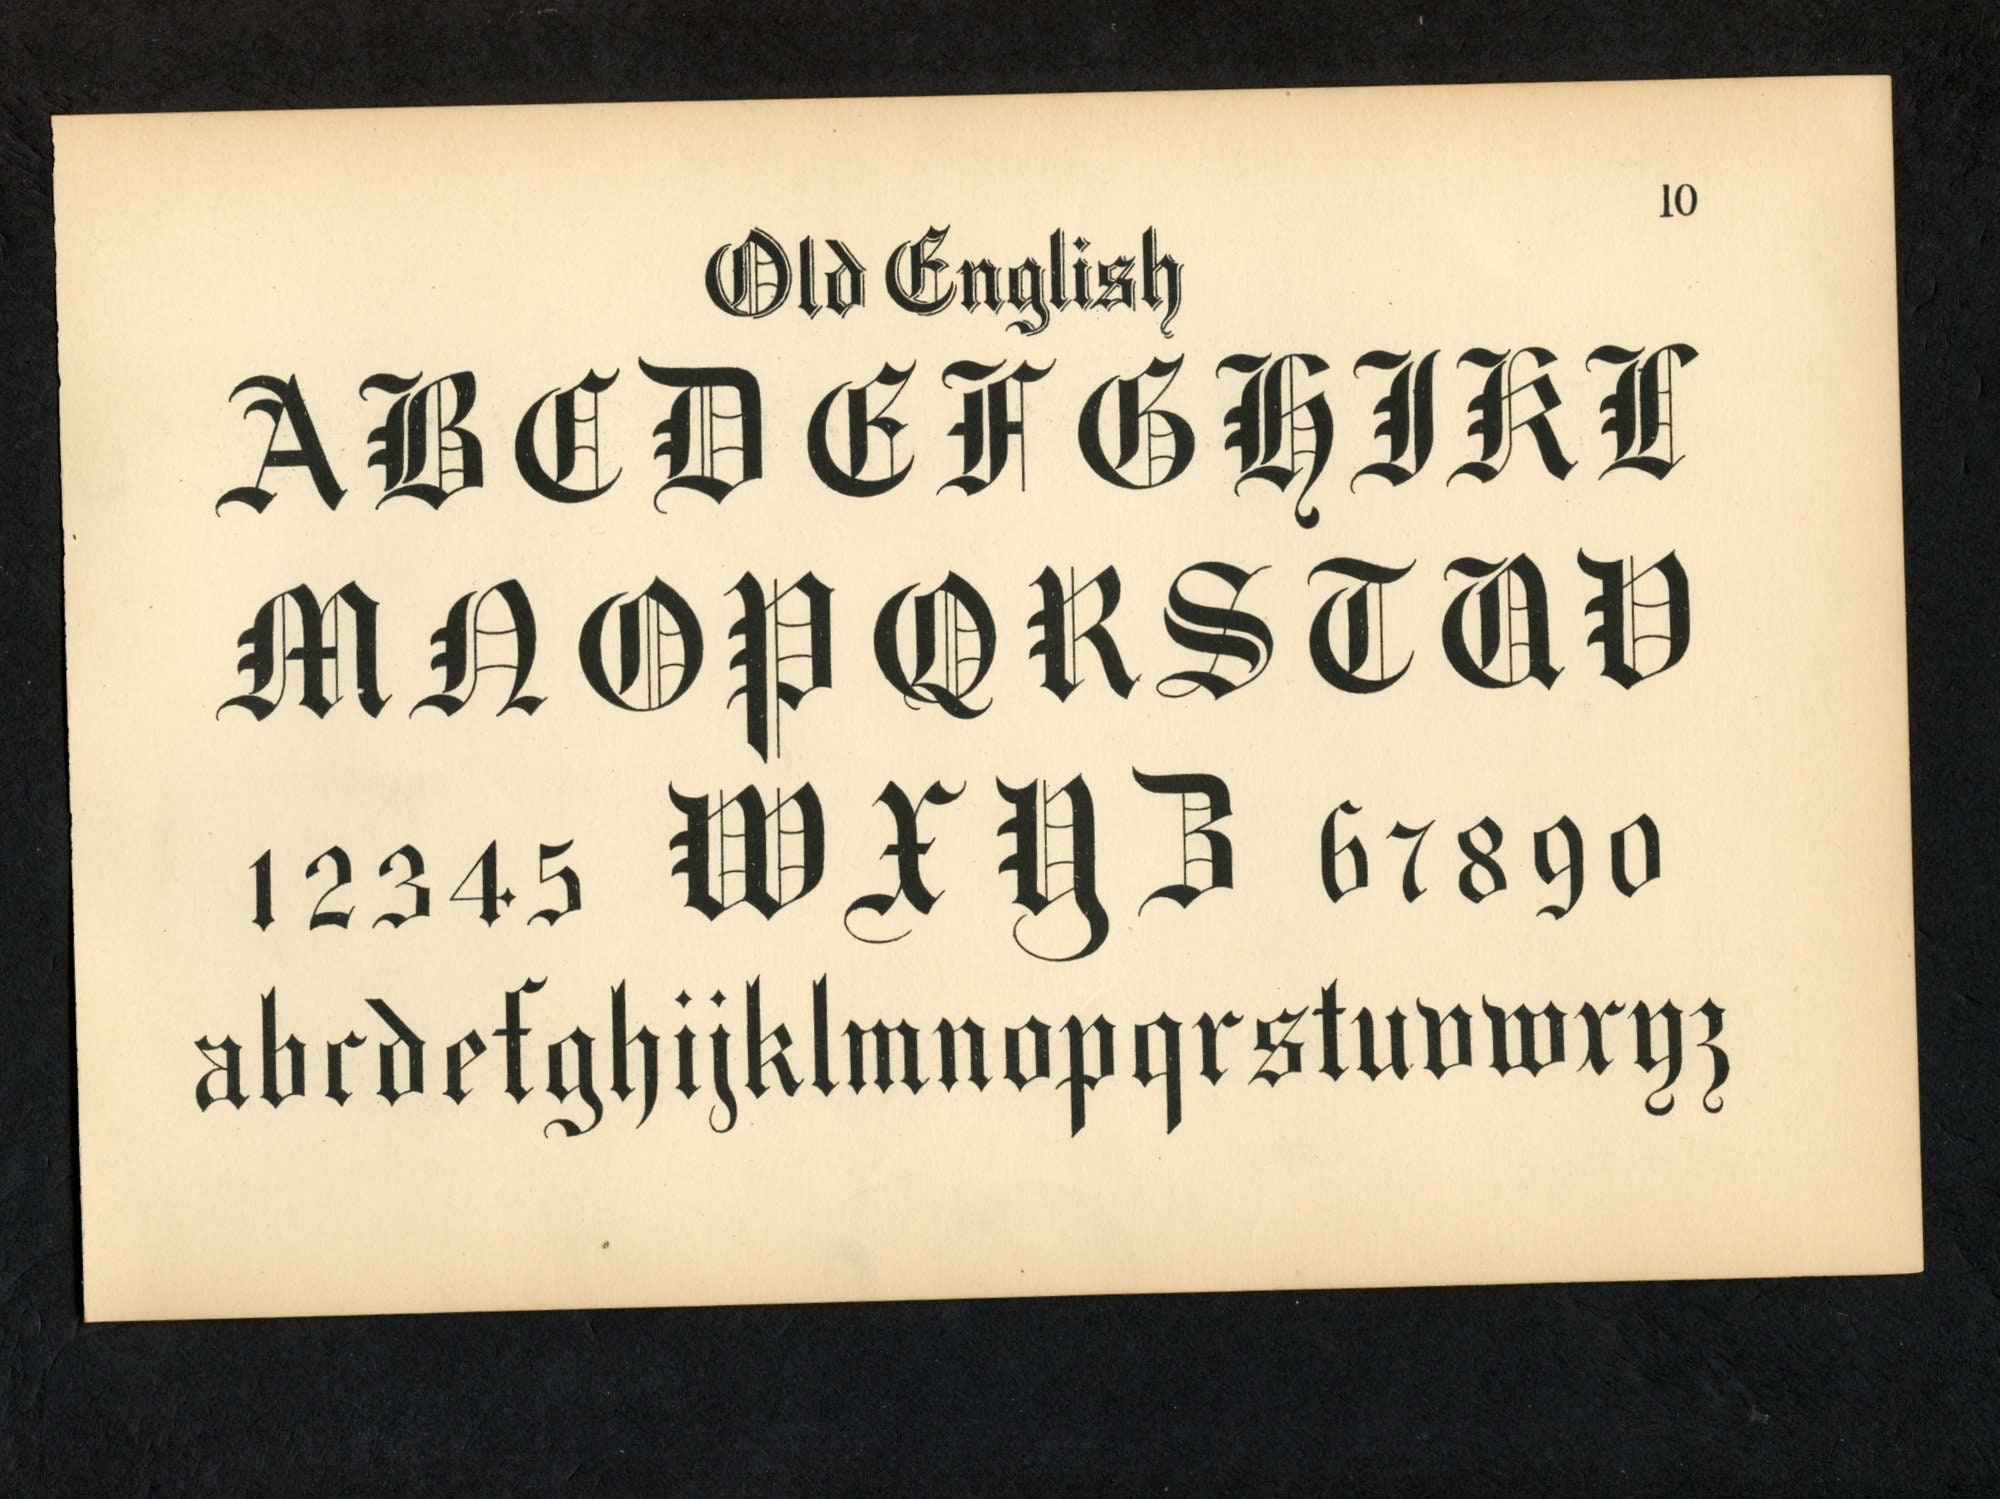 10
Old English
A B C D E F G H I K L
M N O P Q R S T U V
1 2 3 4 5 W X Y Z 6 7 8 9 0
a b c d e f g h i j k l m n o p q r s t u v w x y z